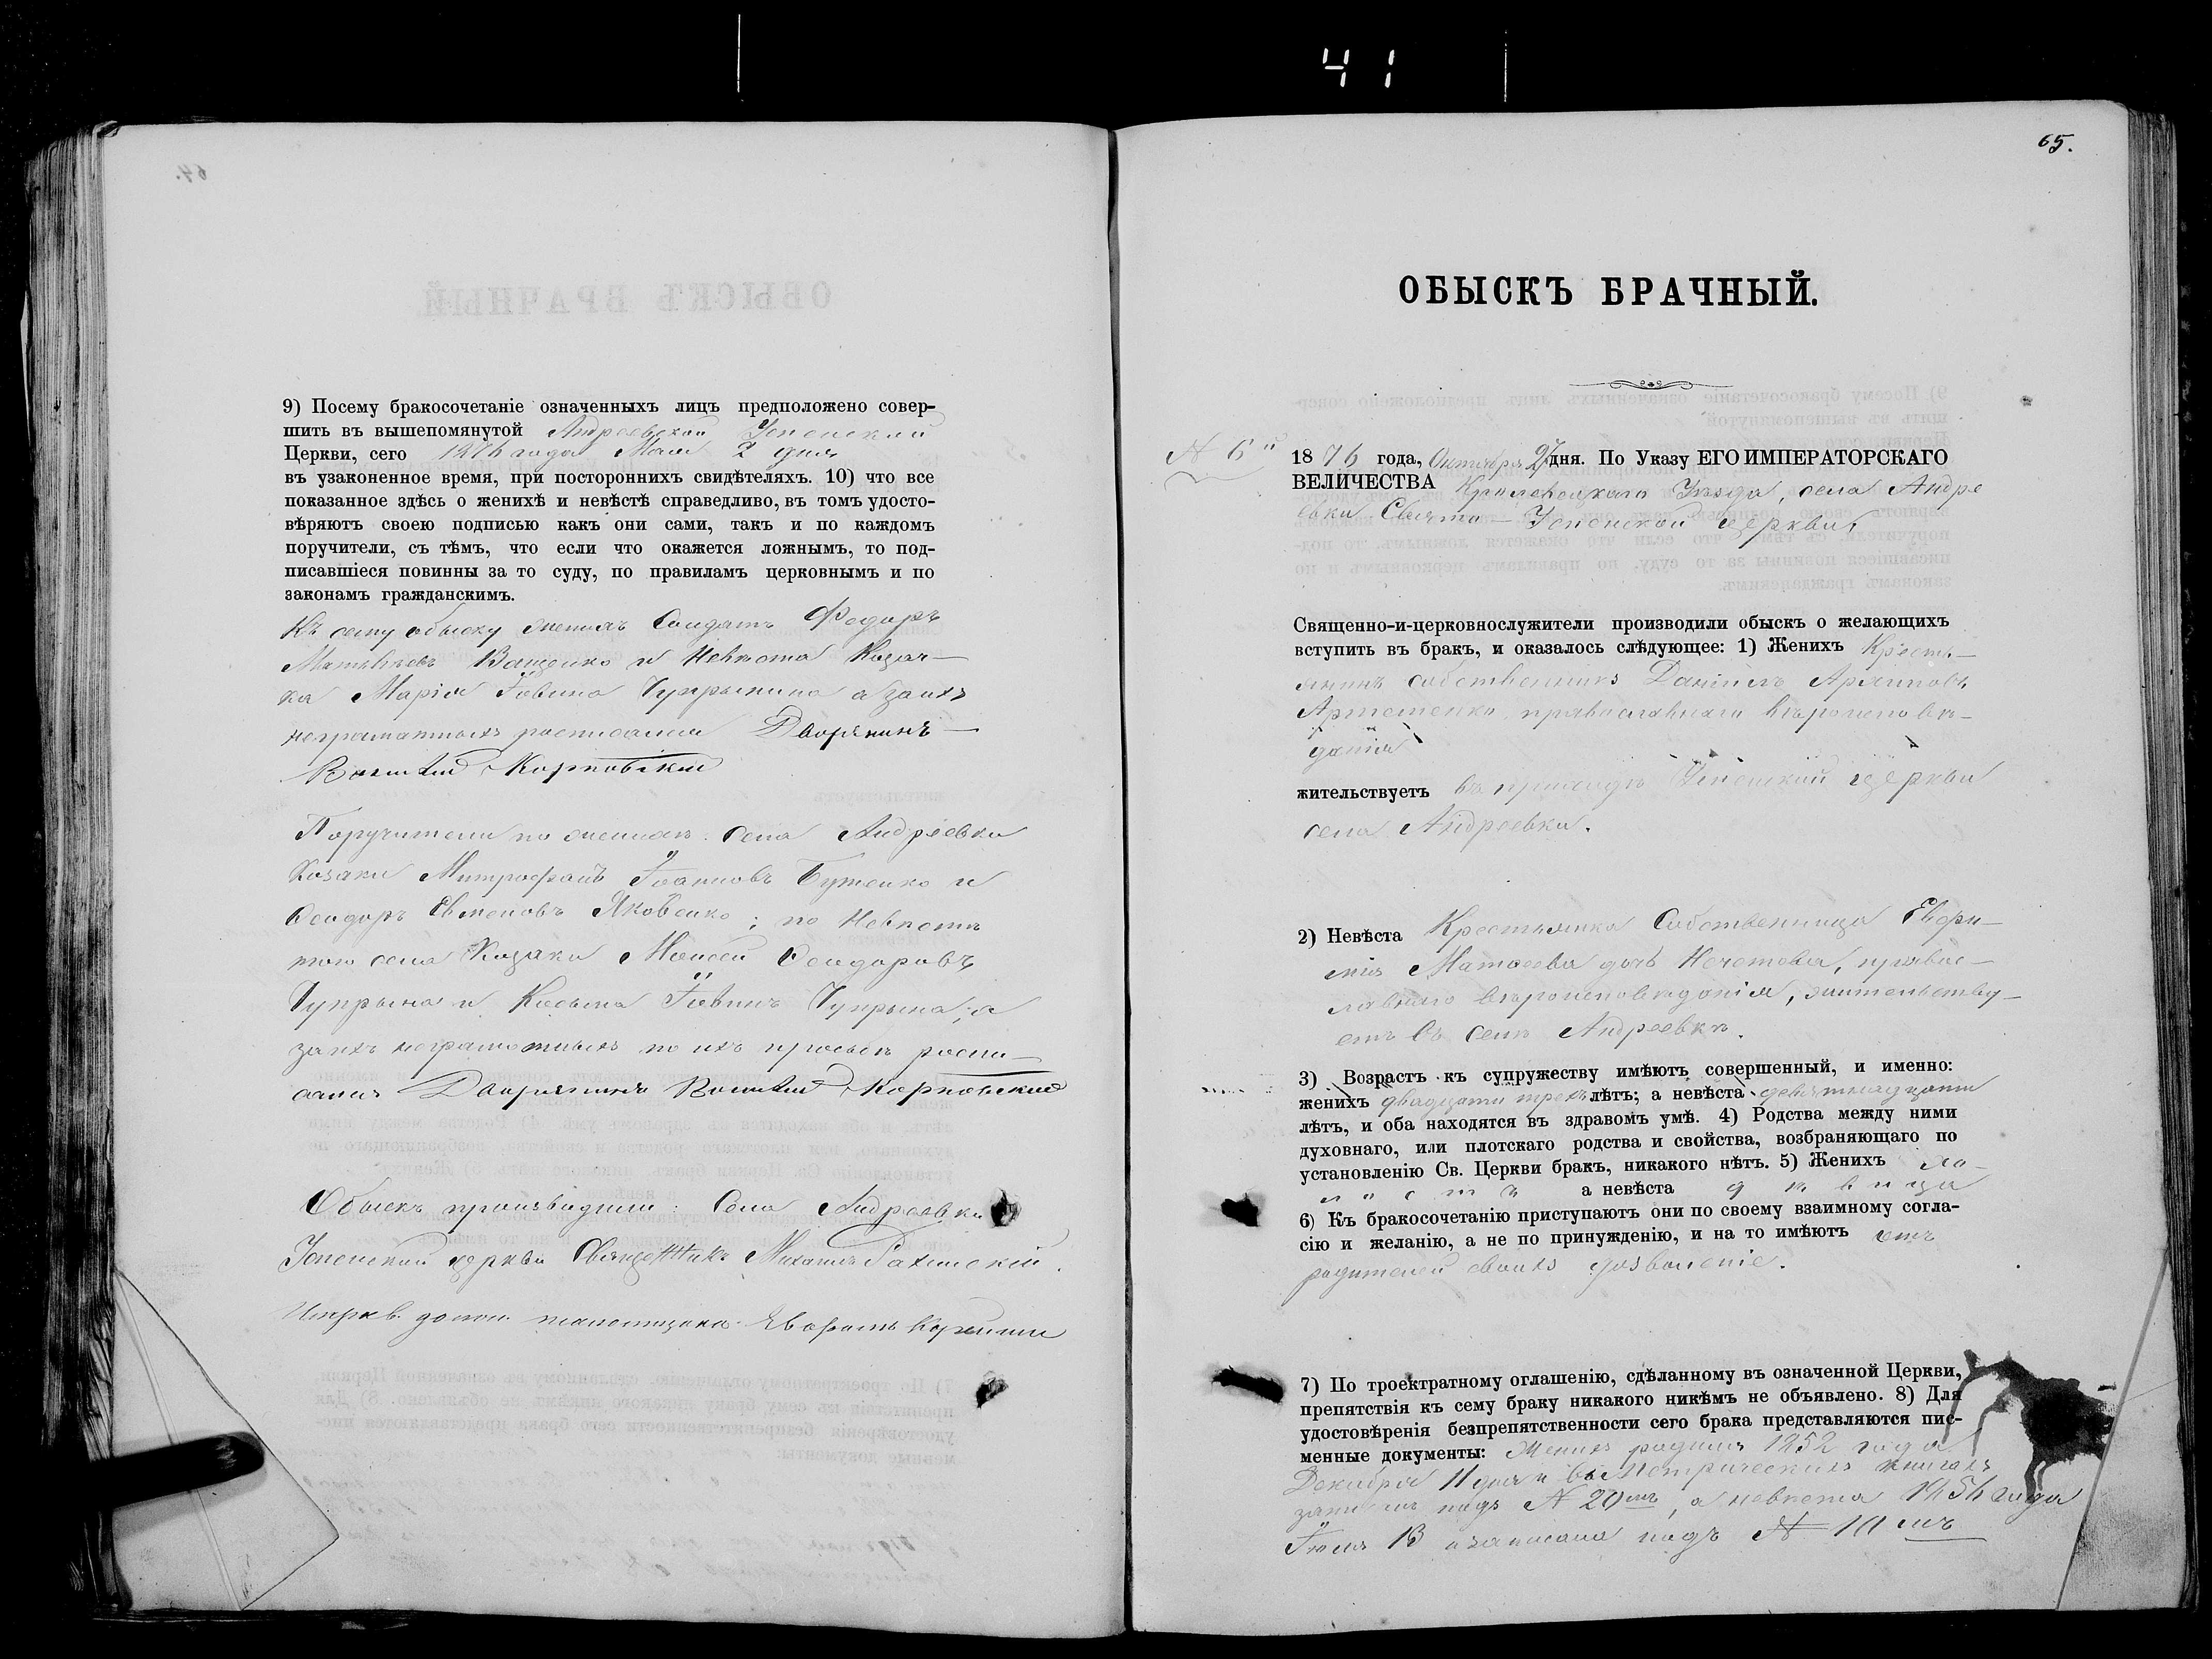 41
9) Посему бракосочетаніе означенныхъ лицъ предположено совер-
шить въ вышепомянутой Андреевской Успенской
Церкви, сего 1876 года Мая 2 дня
въ узаконенное время, при постороннихъ свидѣтеляхъ. 10) что все
показанное здѣсь о женихѣ и невѣстѣ справедливо, въ томъ удосто-
вѣряютъ своею подписью какъ они сами, такъ и по каждомъ
поручители, съ тѣмъ, что если что окажется ложнымъ, то под-
писавшіеся повинны за то суду, по правиламъ церковнымъ и по
законамъ гражданскимъ.
Къ сему обыску женихъ Солдатъ Федоръ
Ващенко и Невѣста Козач-
ка Марія Іовина Чупрынина а за ихъ
неграмотныхъ росписался Дворянинъ
Корновскій
Поручители по женихѣ села Андреевки
Козаки Митрофанъ Іоанновъ Бутенко и
Феодоръ Евменовъ Яковенко; по Невѣстѣ
того села Козаки Моисей Феодоровъ
Чупрына и Косьма Іовинъ Чупрына, а
за ихъ неграмотныхъ по ихъ просьбѣ роспи-
сался Дворянинъ Корновскій
Обыскъ производили: Села Андреевки
Успенской церкви Священникъ Михаилъ Рахинскій.
65.
ОБЫСКЪ БРАЧНЫЙ.
N 6й
1876 года, Октября 27 дня. По Указу ЕГО ИМПЕРАТОРСКАГО
ВЕЛИЧЕСТВА Кролевецкаго Уѣзда, села Андре
евки Свято-Успенской церкви,
Священно-и-церковнослужители производили обыск о желающихъ
вступить въ бракъ, и оказалось слѣдующее: 1) Женихъ Кресть-
янинъ собственникъ Даніилъ Архиповъ
Артеменко, православнаго вѣроисповѣ-
данія
жительствуетъ въ приходѣ Успенской церкви
села Андреевки.
2) Невѣста Крестьянка Собственница Евфи-
мія Матөеева дочь Нечетова, правос-
лавнаго вѣроисповѣданія, жительству-
етъ въ селѣ Андреевкѣ.
3) Возрастъ къ супружеству имѣютъ совершенный, и именно:
женихъ двадцати трехъ лѣтъ; а невѣста девятнадцати
лѣтъ, и оба находятся въ здравомъ умѣ. 4) Родства между ними
духовнаго, или плотскаго родства и свойства, возбраняющаго по
установленію Св. Церкви бракъ, никакого нѣтъ. 5) Женихъ хо-
лостъ а невѣста дѣвица
6) Къ бракосочетанію приступаютъ они по своему взаимному согла-
сію и желанію, а не по принужденію, и на то имѣютъ отъ
родителей своихъ дозволеніе.
7) По троектратному оглашенію, сдѣланному въ означенной Церкви,
препятствія къ сему браку никакого никѣмъ не объявлено. 8) Для
удостовѣренія безпрепятственности сего брака представляются пис-
менные документы: Женихъ родился 1852 года
Декабря 11 дня и въ Метрическихъ книгахъ
записанъ подъ N 20мъ, а невѣста года
Іюля 13 и записана подъ N 10мъ